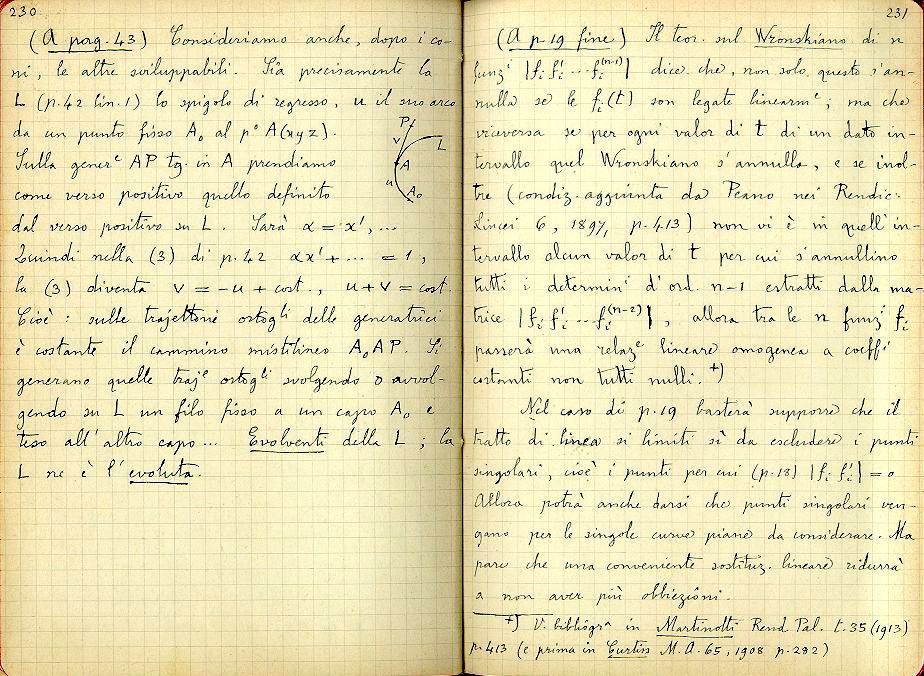 230
(A pag. 43) Consideriamo anche, dopo i co-
ni, le altre sviluppabili. Sia precisamente la
L (p. 42 lin. 1) lo spigolo di regresso, u il suo arco
da un punto fisso A₀ al pº A(xyz).
Sulla generᵉ AP tg. in A prendiamo
come verso positivo quello definito
dal verso positivo su L. Sarà α = x', ...
Quindi nella (3) di p. 42 αx' + ... = 1,
la (3) diventa v = -u + cost., u + v = cost.
Cioè: sulle trajettorie ortogˡⁱ delle generatrici
è costante il cammino mistilineo A₀AP. Si
generano quelle trajᵉ ortogˡⁱ svolgendo o avvol-
gendo su L un filo fisso a un capo A₀ e
teso all'altro capo... Evolventi della L; la
L ne è l'evoluta.
P
L
v
A
u
A₀
231
(A p. 19 fine) Il teor. sul Wronskiano di n
funzⁱ |fᵢ fᵢ' ... fᵢ⁽ⁿ⁻¹⁾| dice che, non solo questo s'an-
nulla se le fᵢ(t) son legate linearmᵉ; ma che
viceversa se per ogni valor di t di un dato in-
tervallo quel Wronskiano s'annulla, e se inol-
tre (condiz. aggiunta da Peano nei Rendic.
Lincei 6, 1897, p. 413) non vi è in quell'in-
tervallo alcun valor di t per cui s'annullino
tutti i determinⁱ d'ord. n-1 estratti dalla ma-
trice |fᵢ fᵢ' ... fᵢ⁽ⁿ⁻²⁾|, allora tra le n funzⁱ fᵢ
passerà una relazᵉ lineare omogenea a coeffⁱ
costanti non tutti nulli. +)
Nel caso di p. 19 basterà supporre che il
tratto di linea si limiti sì da escludere i punti
singolari, cioè i punti per cui (p. 18) |fᵢ fᵢ'| = 0
Allora potrà anche darsi che punti singolari ven-
gano per le singole curve piane da considerare. Ma
pare che una conveniente sostituz. lineare ridurrà
a non aver più obbiezioni.
+) V. bibliogrᵃ in Martinotti Rend. Pal. t. 35 (1913)
p. 413 (e prima in Curtiss M.A. 65, 1908 p. 282)